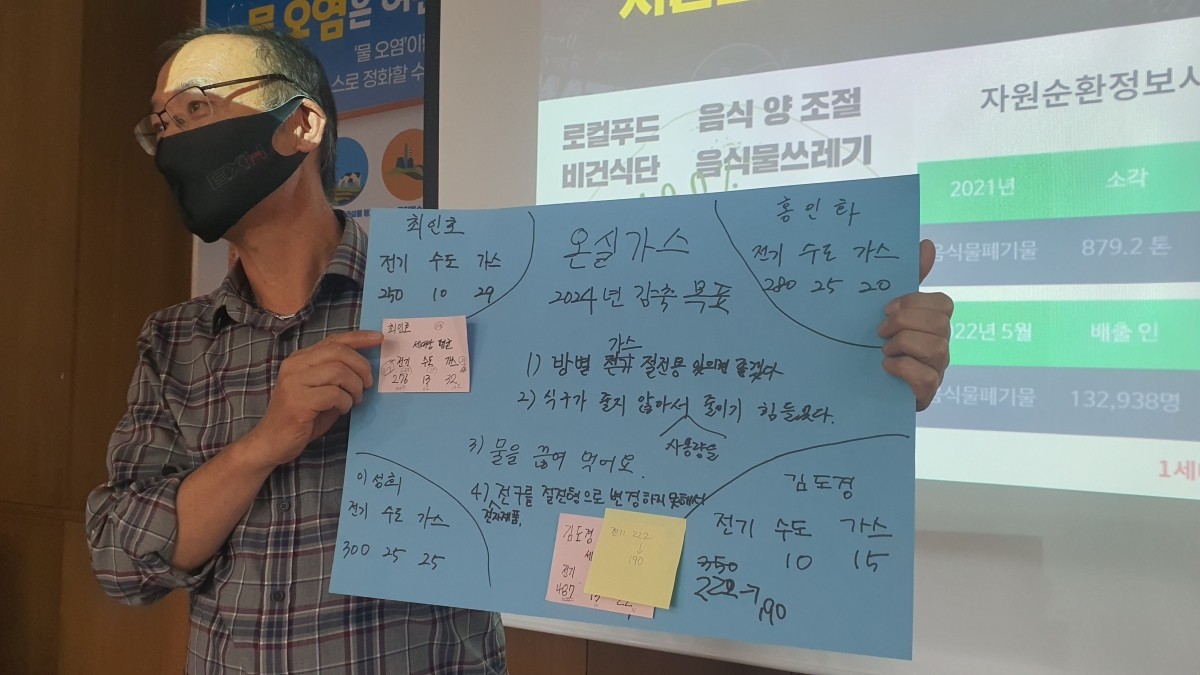 물 오염은
'물 오염'이
스로 정화할 수
로컬푸드 음식 양 조절
비건식단 음식물쓰레기
자원순환정보시
2021년 소각
음식물폐기물 879.2 톤
2022년 5월 배출 인
음식물폐기물 132,938명
1세
최인호
전기 수도 가스
250 10 29
최인호
세대당 평균
전기 수도 가스
276 13 32
온실가스
2024년 감축 목표
홍인화
전기 수도 가스
280 25 20
가스
1) 방별 전기 절전용 있으면 좋겠다
2) 식구가 줄지 않아서 줄이기 힘들었다.
사용량을
3) 물을 끓여 먹어요.
4) 전구를 절전형으로 변경하지 못해서
전자제품,
이성희
전기 수도 가스
300 25 25
김도경
전기
487
전기 222
↓
190
김도경
전기 수도 가스
350 10 15
222→190